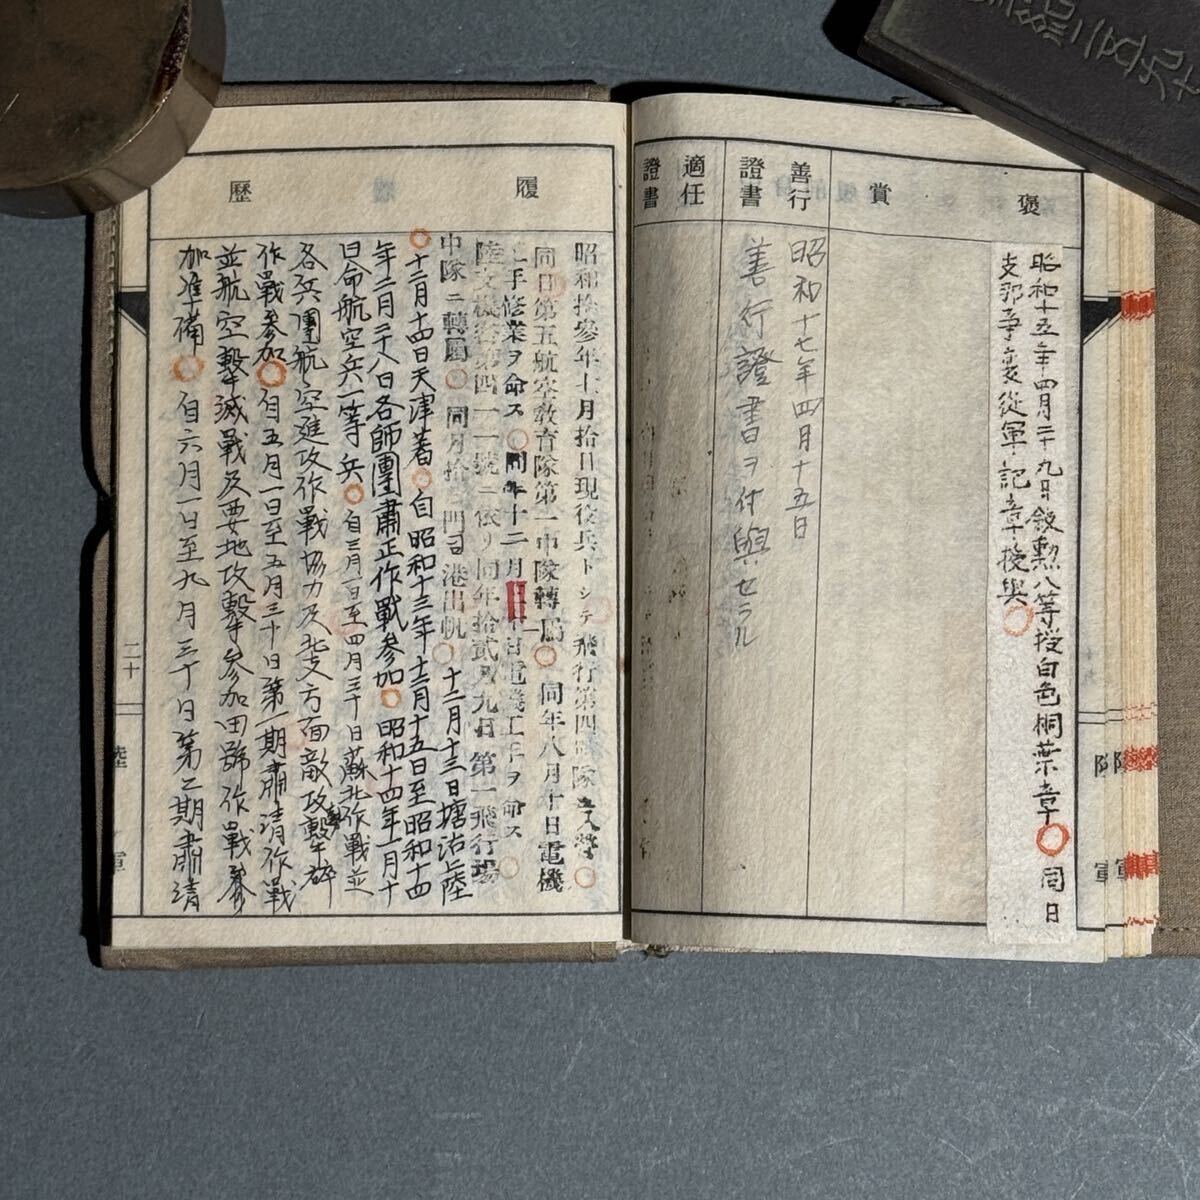 褒賞
昭和十五年四月二十九日敘勲八等授白色桐葉章 同日
支那事変従軍記章授與
善行證書
昭和十七年四月十五日
善行證書ヲ付與セラル
適任證書
履歷
昭和拾參年 月拾日現役兵トシテ飛行第四 隊
同日第五航空教育隊第一中隊轉屬 同年八月十日電機
工手修業ヲ命ス 同年十二月 日電機工手ヲ命ス
陸支機密第四一一號ニ依リ同年拾貳月九日第一飛行場
中隊ニ轉屬 同月拾 門司港出帆 十二月十三日塘沽上陸
十二月十四日天津著 自昭和十三年十二月十五日至昭和十四
年二月二十八日各師團肅正作戰參加 昭和十四年一月十
日命航空兵一等兵 自三月一日至四月三十日蘇北作戰並
各兵團航空進攻作戰協力及北支方面敵攻擊擊碎
作戰參加 自五月一日至五月三十日第一期肅清作戰
並航空擊滅戰及要地攻擊參加田號作戰參
加準備 自六月一日至九月三十日第二期肅清
二十
陸軍